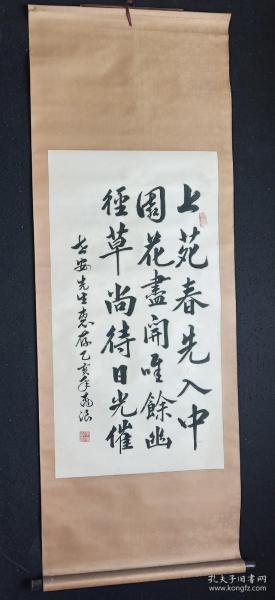 上苑春先入中
園花盡開唯餘幽
徑草尚待日光催
先生惠存乙亥年
孔夫子旧书网